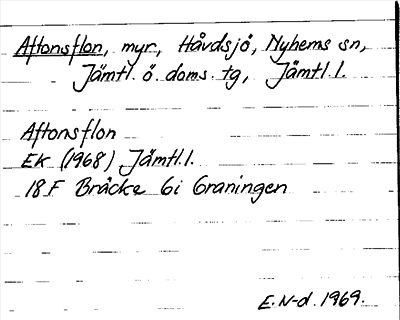 Aftonsflon, myr, Håvdsjö, Nyhems sn,
Jämtl. ö. doms. tg, Jämtl. l.
Aftonsflon
EK (1968) Jämtl. l.
18 F Bräcke 6i Graningen
E. N-d. 1969.